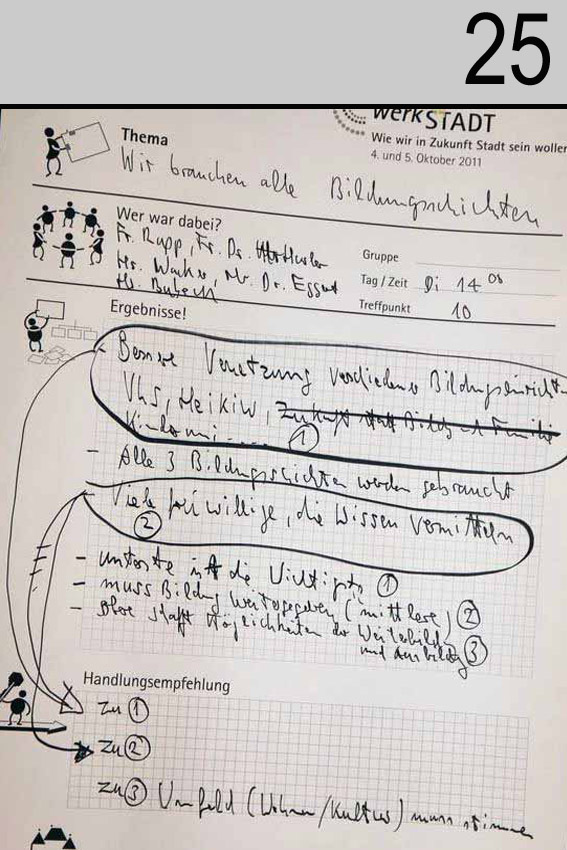 25
werkSTADT
Wie wir in Zukunft Stadt sein wollen
4. und 5. Oktober 2011
Thema
Wir brauchen alle Bildungsschichten
Wer war dabei?
Fr. Rupp, Fr. Dr.
Hr. Dr.
Gruppe
Tag / Zeit Di 14 00
Treffpunkt 10
Ergebnisse!
Bessere Vernetzung verschiedener
Vhs, HeiKiW,
1
- Alle 3 Bildungsschichten werden gebraucht
- Viele freiwillige, die Wissen vermitteln
2
- unterste ist die Wichtigste 1
- muss Bildung weitergeben (mittlere) 2
- obere schafft Möglichkeiten der Weiterbildg
und Ausbildg 3
Handlungsempfehlung
zu 1
zu 2
zu 3 Umfeld (Wohnen/Kultur) muss stimmen